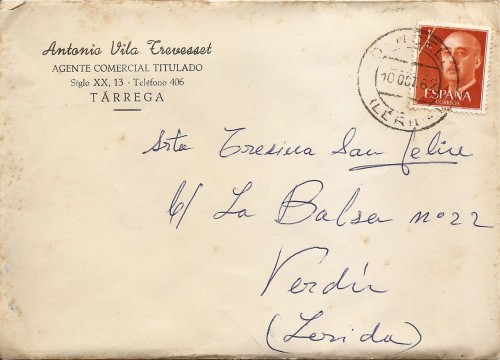 Antonio Vila Trevesset
AGENTE COMERCIAL TITULADO
Siglo XX, 13 - Teléfono 406
TÁRREGA
10 OCT
ESPAÑA
CORREOS
Srta Tresina San Felice
c/ La Balsa nº 22
Verdú
(Lerida)